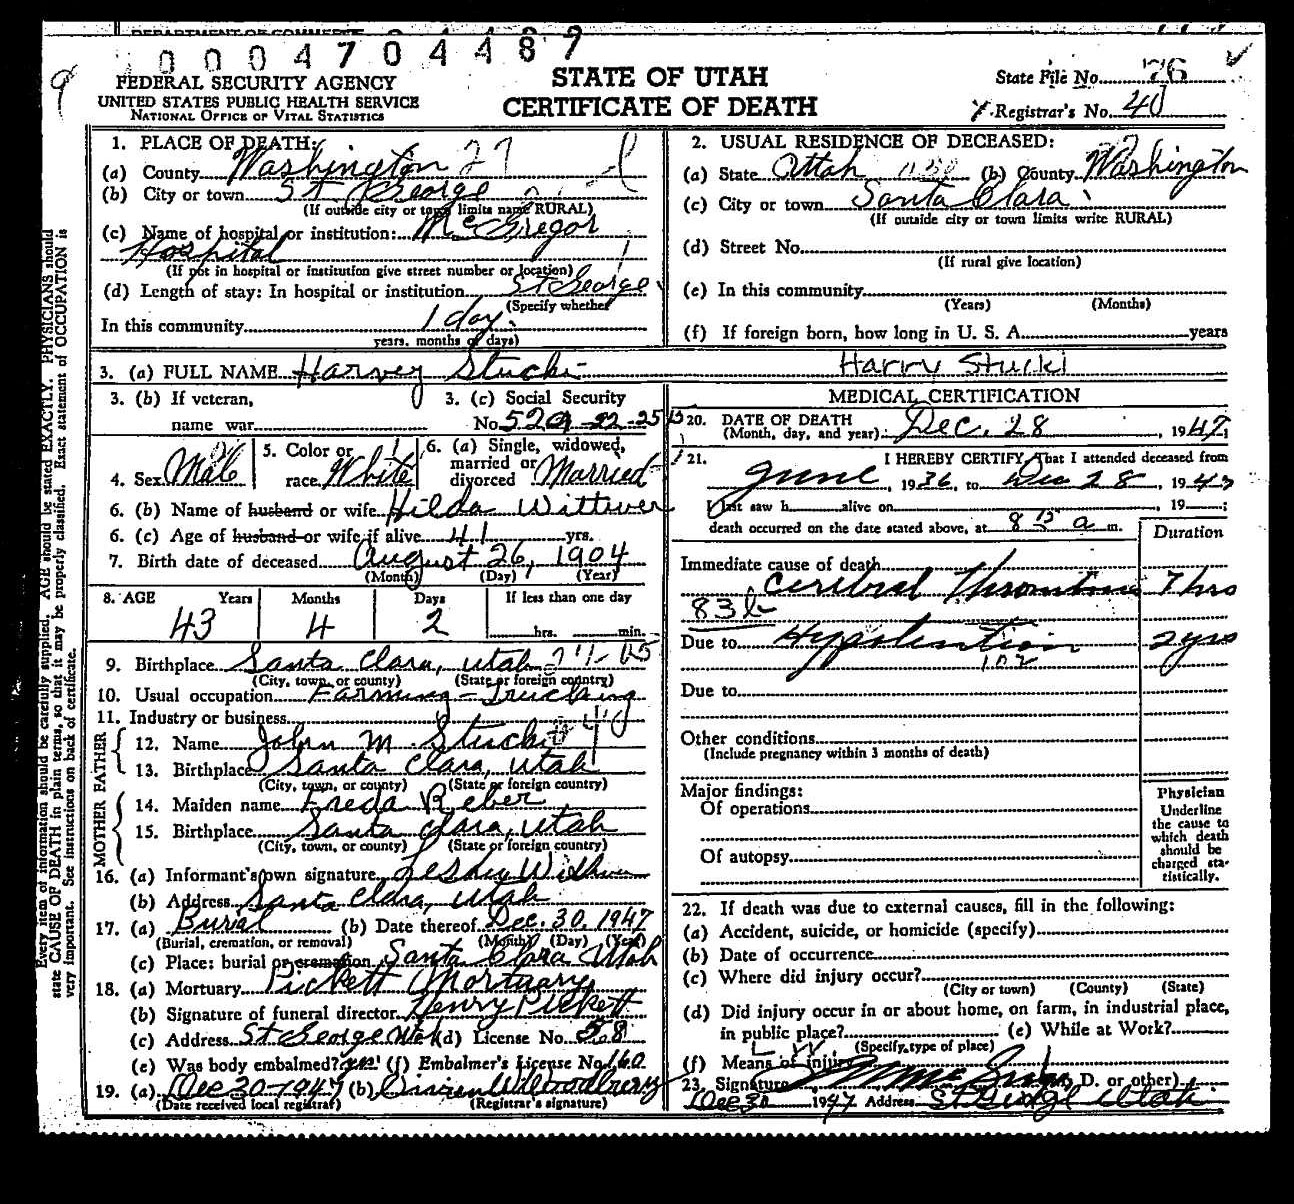 DEPARTMENT OF COMMERCE
0004704489
FEDERAL SECURITY AGENCY
UNITED STATES PUBLIC HEALTH SERVICE
NATIONAL OFFICE OF VITAL STATISTICS
STATE OF UTAH
CERTIFICATE OF DEATH
State File No. 76
Registrar's No. 40
Every item of information should be carefully supplied. AGE should be stated EXACTLY. PHYSICIANS should
state CAUSE OF DEATH in plain terms, so that it may be properly classified. Exact statement of OCCUPATION is
very important. See instructions on back of certificate.
1. PLACE OF DEATH:
(a) County Washington 27
(b) City or town St. George
(If outside city or town limits name RURAL)
(c) Name of hospital or institution: McGregor
Hospital
(If not in hospital or institution give street number or location)
(d) Length of stay: In hospital or institution St George
(Specify whether
In this community 1 day
years, months or days)
2. USUAL RESIDENCE OF DECEASED:
(a) State Utah (b) County Washington
(c) City or town Santa Clara
(If outside city or town limits write RURAL)
(d) Street No.
(If rural give location)
(e) In this community
(Years) (Months)
(f) If foreign born, how long in U. S. A. years
3. (a) FULL NAME Harvey Stucki Harry Stucki
3. (b) If veteran,
name war
3. (c) Social Security
No. 529-22-25
4. Sex Male
5. Color or
race White
6. (a) Single, widowed,
married or
divorced Married
6. (b) Name of husband or wife Hilda Wittwer
6. (c) Age of husband or wife if alive 41 yrs.
7. Birth date of deceased August 26, 1904
(Month) (Day) (Year)
8. AGE Years Months Days If less than one day
43 4 2 hrs. min.
9. Birthplace Santa Clara, Utah
(City, town, or county) (State or foreign country)
10. Usual occupation Farming - Trucking
11. Industry or business
FATHER
12. Name John M. Stucki
13. Birthplace Santa Clara, Utah
(City, town, or county) (State or foreign country)
MOTHER
14. Maiden name Freda Reber
15. Birthplace Santa Clara, Utah
(City, town, or county) (State or foreign country)
16. (a) Informant's own signature Wittwer
(b) Address Santa Clara, Utah
17. (a) Burial (b) Date thereof Dec. 30, 1947
(Burial, cremation, or removal) (Month) (Day) (Year)
(c) Place: burial or cremation Santa Clara Utah
18. (a) Mortuary Pickett Mortuary
(b) Signature of funeral director Henry Pickett
(c) Address St George Utah (d) License No. 58
(e) Was body embalmed? yes (f) Embalmer's License No. 160
19. (a) Dec 30-1947 (b)
(Date received local registrar) (Registrar's signature)
MEDICAL CERTIFICATION
20. DATE OF DEATH
(Month, day, and year): Dec. 28, 1947;
21. I HEREBY CERTIFY That I attended deceased from
June, 1936, to Dec 28, 1947
I last saw h alive on , 19 ;
death occurred on the date stated above, at 8 15 a m.
Duration
Immediate cause of death
Cerebral Thrombosis 7 hrs
83b
Due to Hypertension 2 yrs
102
Due to
Other conditions
(Include pregnancy within 3 months of death)
Major findings:
Of operations
Of autopsy
Physician
Underline
the cause to
which death
should be
charged sta-
tistically.
22. If death was due to external causes, fill in the following:
(a) Accident, suicide, or homicide (specify)
(b) Date of occurrence
(c) Where did injury occur?
(City or town) (County) (State)
(d) Did injury occur in or about home, on farm, in industrial place,
in public place? (e) While at Work?
(Specify type of place)
(f) Means of injury
23. Signature (M. D. or other)
Dec 30 1947 Address St George Utah